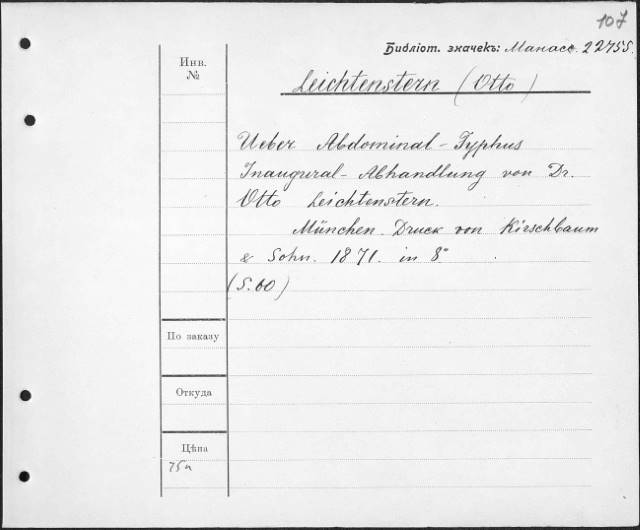 107
Библіот. значекъ: Манасс. 22755.
Инв. №
Leichtenstern (Otto)
Ueber Abdominal-Typhus
Inaugural-Abhandlung von Dr.
Otto Leichtenstern.
München. Druck von Kirschbaum
& Sohn. 1871. in 8°.
(S. 60)
По заказу
Откуда
Цѣна